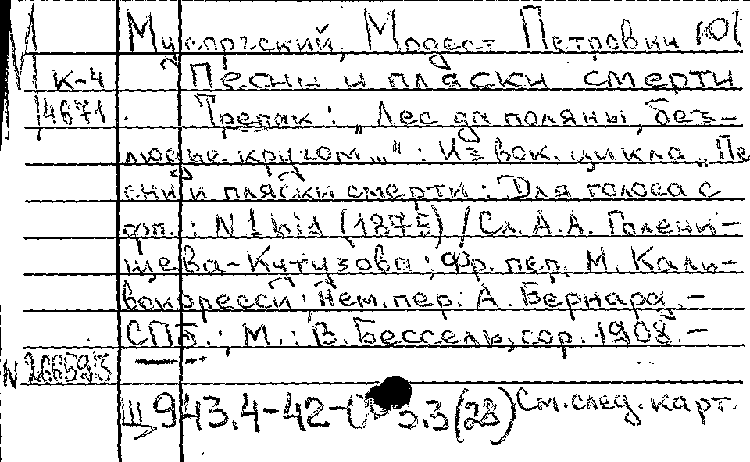 Мусоргский, Модест Петрович
К-4 Песни и пляски смерти
4671 Трепак: „Лес да поляны, без-
людье кругом...": Из вок. цикла „Пе
сни и пляски смерти: Для голоса с
фп.: N 1 bis (1875) / Сл. А.А. Голени-
щева-Кутузова; Фр. пер. М. Каль-
вокоресси; Нем. пер.: А. Бернард. -
СПб.; М.: В. Бессель, cop. 1908. -
N 266593
Щ 943.4-42- 5.3(28) См. след. карт.